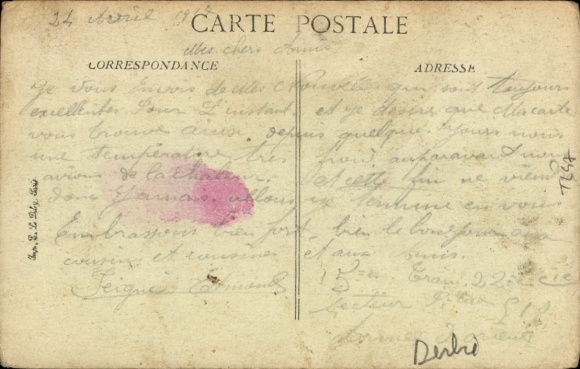 24 Avril 191
CARTE POSTALE
Mes chers Amis
CORRESPONDANCE
ADRESSE
Je vous Envois de Mes Nouvelles qui sont toujours
excellentes Pour L'instant et je désire que Ma carte
vous trouve aussi. depuis quelques jours nous
une température très froid, auparavant nous
avions de la chaleur. et cette fin ne vient
donc Jamais. allons je termine en vous
Embrassons bien fort, bien le bonjour aux
cousins et cousines et aux Amis.
Edmond
15e Train 22e Cie
Secteur 510
Armée d'Orient
Imp. Paris
Derbi